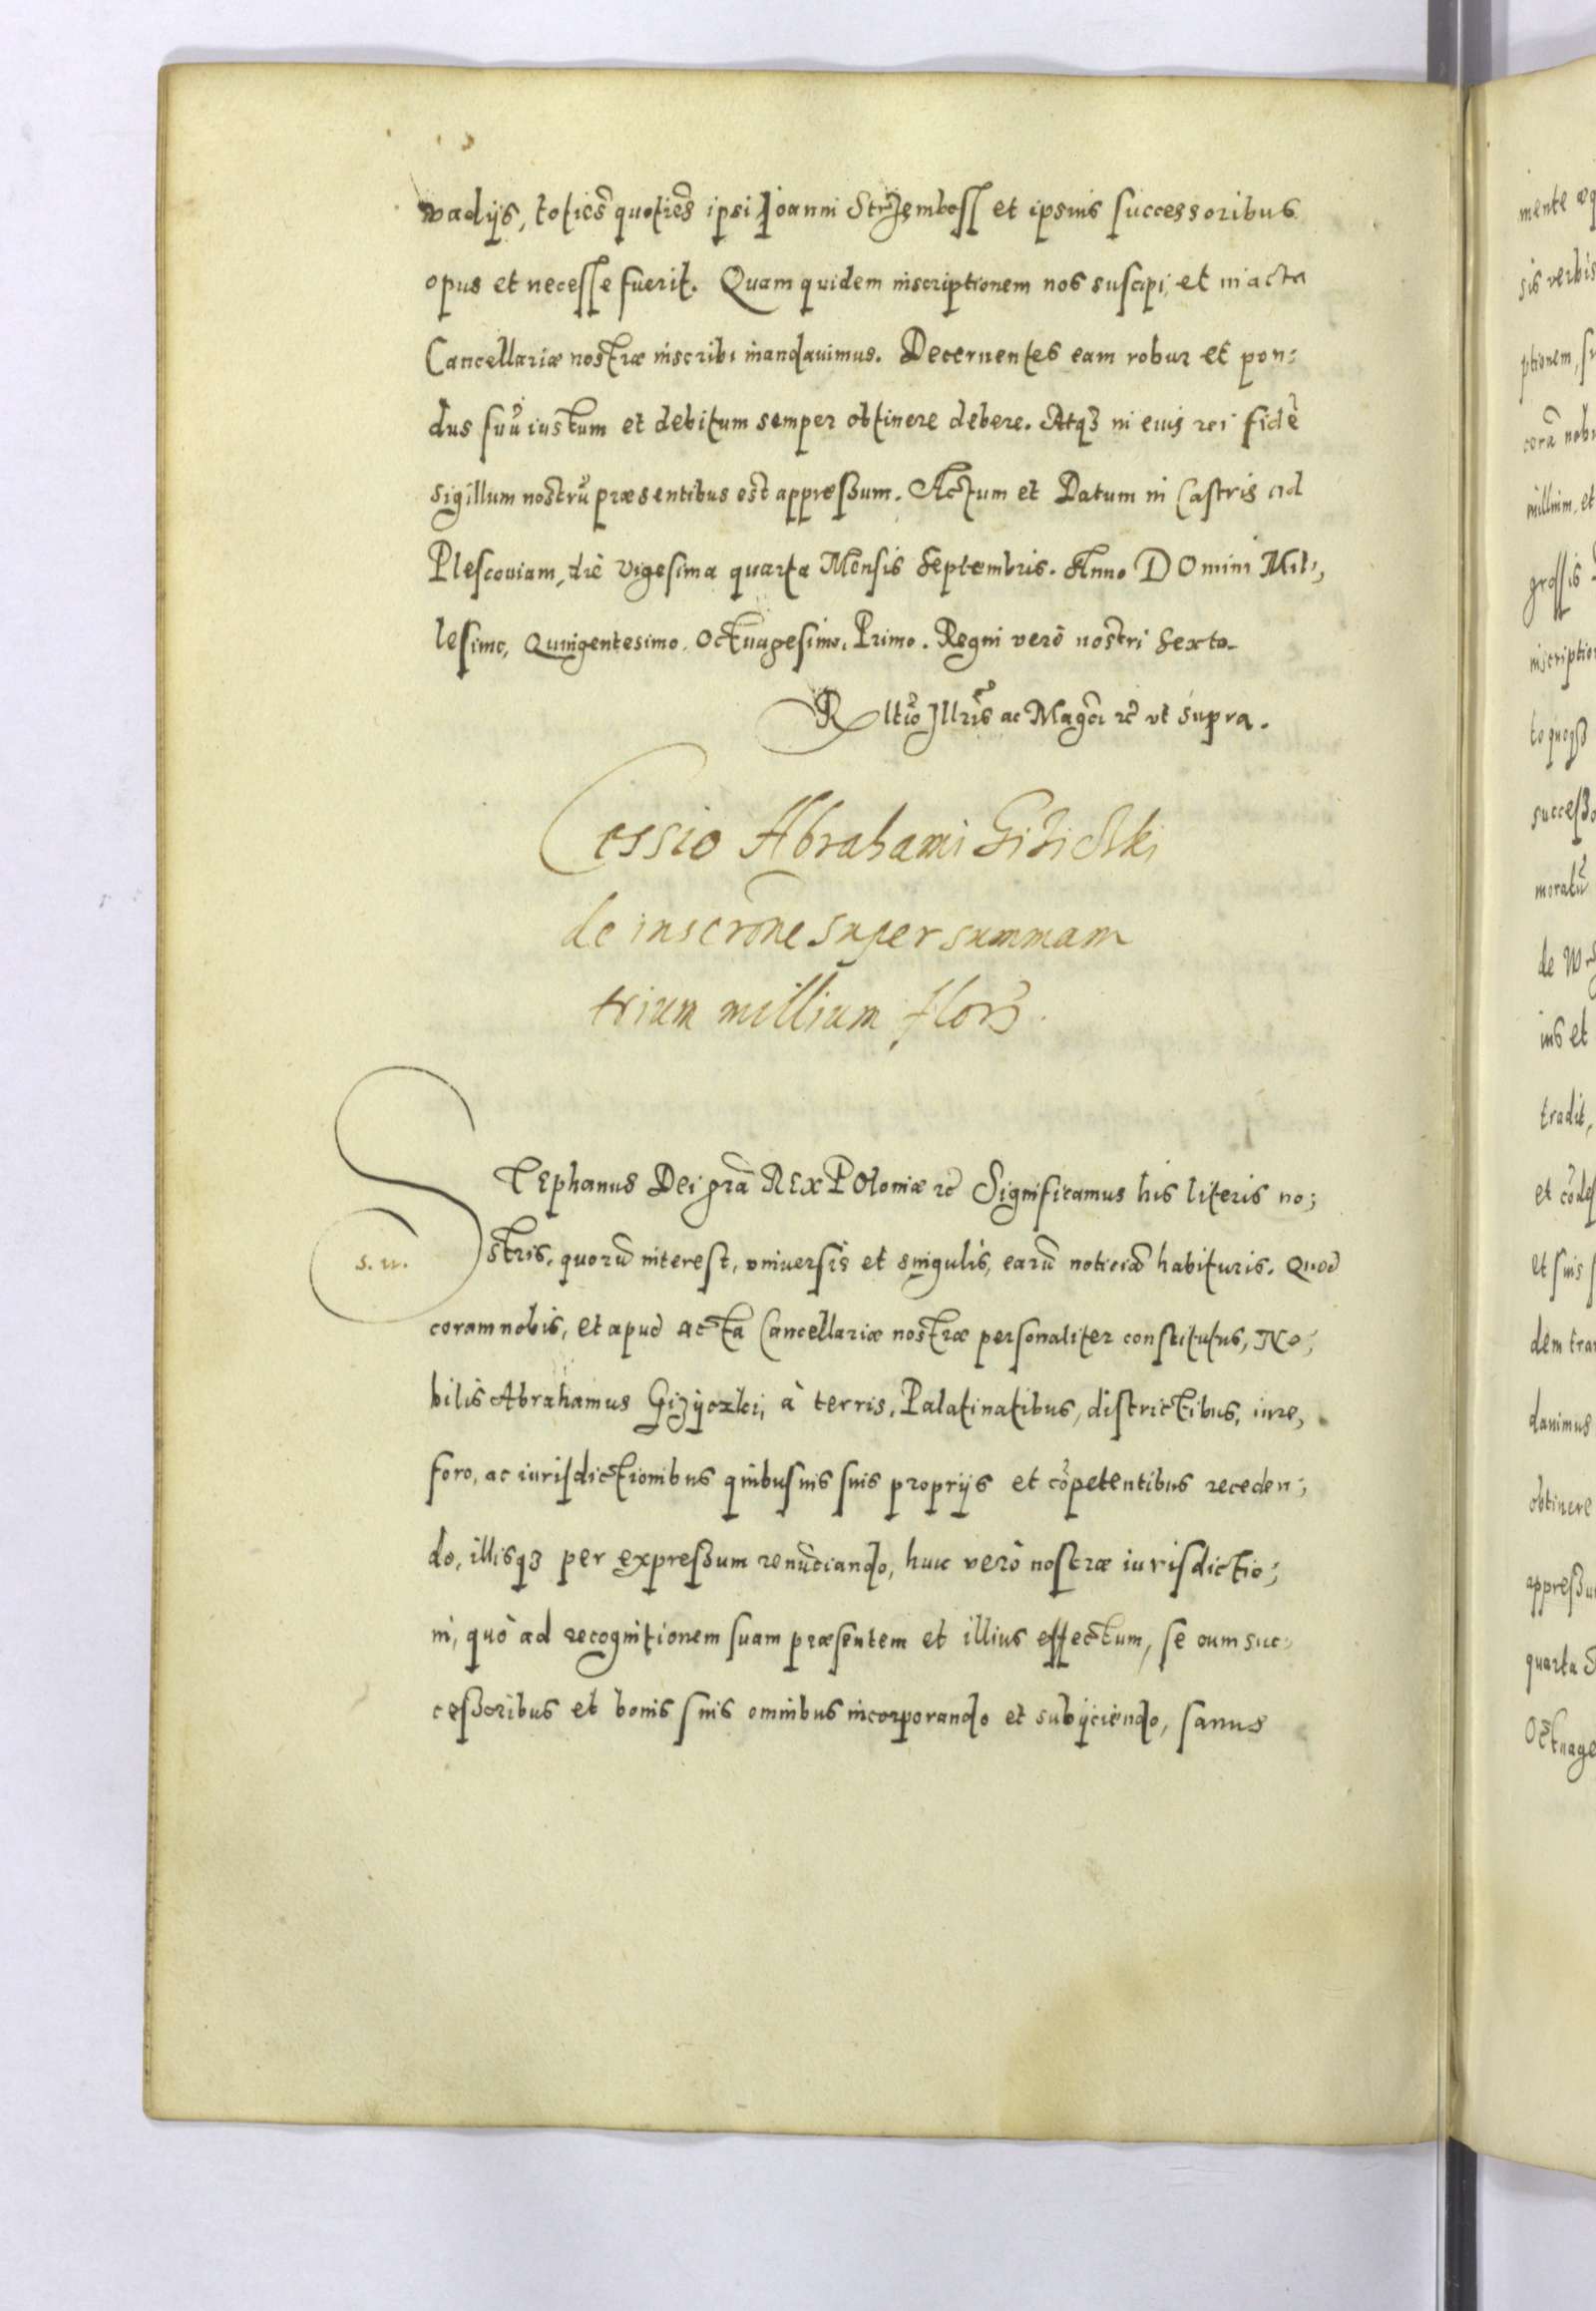 vadijs, toties quoties ipsi Joanni Strzembosſ et ipsius successoribus
opus et necesſe fuerit. Quam quidem inscriptionem nos suscipi, et in acta
Cancellariæ nostræ inscribi mandauimus. Decernentes eam robur et pon:
dus suū iustum et debitum semper obtinere debere. Atqꝫ in eius rei fidē
sigillum nostrū præsentibus est appreßum. Actum et Datum in Castris ad
Plescouiam, die Vigesima quarta Mensis Septembris. Anno DOmini Mil:,
lesimo, Quingentesimo, Octuagesimo, Primo. Regni verò nostri Sexto.
Rltio Jllris ac Magci ꝛc̃ vt supra.
Cessio Abrahami Gizicƶki
de inscrõne super summam
trium millium flor̃.
STEphanus Dei grã REx POloniæ ꝛc̃ Significamus his literis no;
stris, quorū interest, vniuersis et singulis, earū noticiã habituris. Quod
s. w.
coram nobis, et apud acta Cancellariæ nostræ personaliter constitutus, No;
bilis Abrahamus Gizÿczki, à terris, Palatinatibus, districtibus, iure,
foro, ac iurisdictionibus quibusuis suis proprijs et cõpetentibus receden;
do, illisqꝫ per expreßum renũciando, huic verò nostræ iurisdictio;
ni, quò ad recognitionem suam præsentem et illius effectum, se cum suc:
ceßoribus et bonis suis omnibus incorporando et subijciendo, sanus
mente æq
sis verbis
ptionem, su
corã nob
millium, et
grosſis
inscriptio
to quoqꝫ
succeßo
moratũ
de
ius et
tradit,
et cõd
et suis
dem tra
danimus
obtinere
appreßu
quarta
Octuage